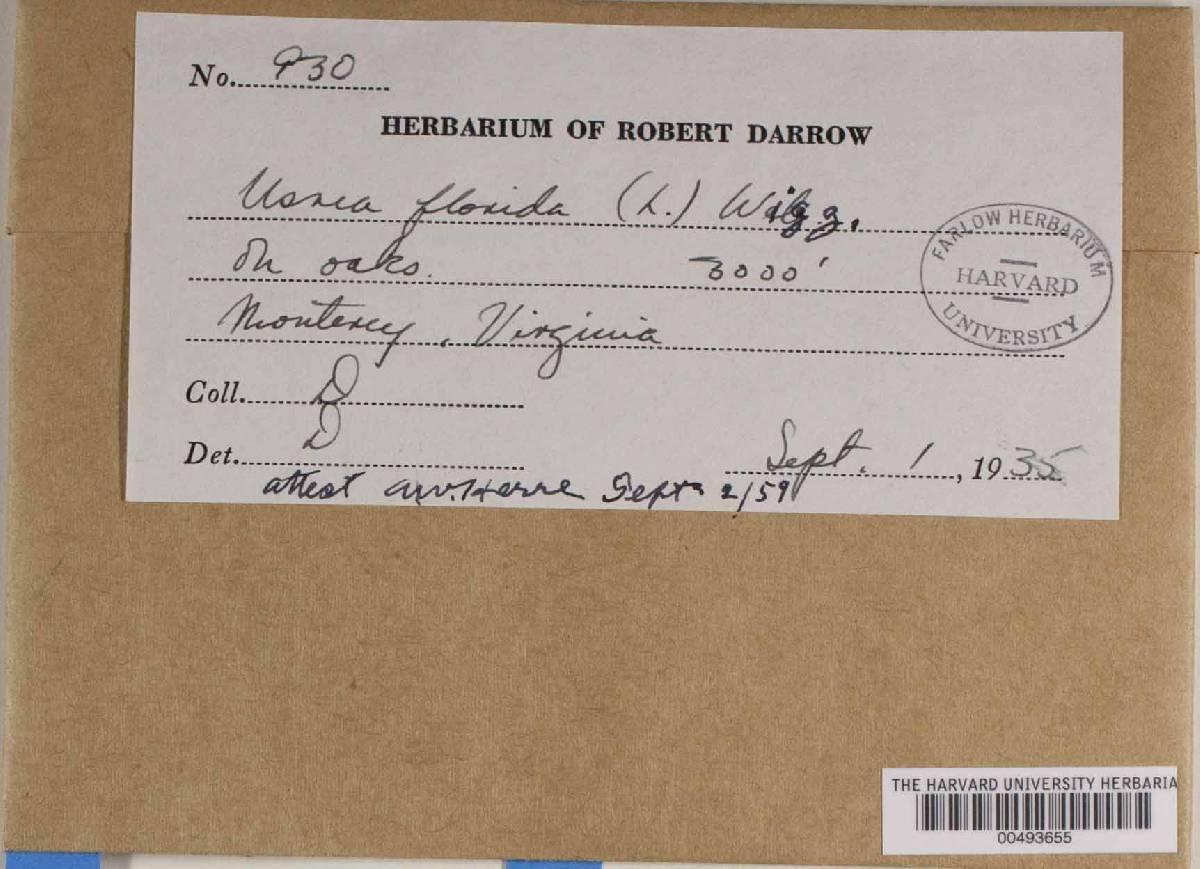 No. 930
HERBARIUM OF ROBERT DARROW
Usnea florida (L.) Wigg.
On oaks. 3000'
Monterey, Virginia
Coll. D
Det. D
Sept. 1, 1935
attest A.W. Herre Sept. 2/59
FARLOW HERBARIUM
HARVARD
UNIVERSITY
THE HARVARD UNIVERSITY HERBARIA
00493655